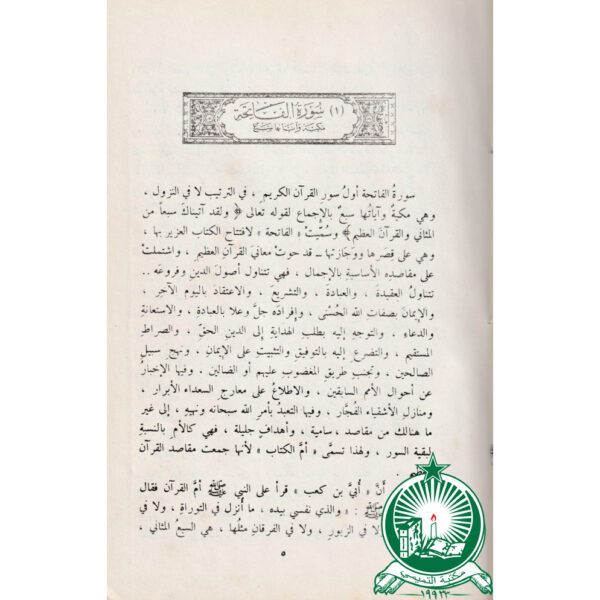 (١) سُورَةُ الفَاتِحَةِ
مكيّة وآياتها سبع
سورةُ الفاتحة أولُ سورِ القرآن الكريم ، في الترتيب لا في النزول ،
وهي مكيةٌ وآياتُها سبعٌ بالإجماع لقوله تعالى ﴿ ولقد آتيناكَ سبعاً من
المثاني والقرآنَ العظيم﴾ وسُميّتْ « الفاتحة » لافتتاحِ الكتاب العزيز بها ،
وهي على قِصَرها ووَجَازتها ــ قد حوتْ معانيَ القرآنِ العظيمِ ، واشتملتْ
على مقاصدِهِ الأساسيةِ بالإجمال ، فهي تتناول أصولَ الدينِ وفروعَه ..
تتناولُ العقيدةَ ، والعبادةَ ، والتشريعَ ، والاعتقادَ باليوم الآخرِ ،
والإيمانَ بصفاتِ اللهِ الحُسْنى ، وإفرادَه جلَّ وعلا بالعبادةِ ، والاستعانةِ
والدعاءِ ، والتوجهِ إليه بطلبِ الهدايةِ إلى الدينِ الحقِّ ، والصراطِ
المستقيم ، والتضرعِ إليه بالتوفيقِ والتثبيتِ على الإيمانِ ، ونهجِ سبيلِ
الصالحين ، وتجنبِ طريقِ المغضوبِ عليهم أو الضالين . وفيها الإخبارُ
عن أحوالِ الأممِ السابقين ، والاطلاعُ على معارجِ السعداءِ الأبرار ،
ومنازلِ الأشقياءِ الفُجَّار ، وفيها التعبدُ بأمرِ اللهِ سبحانه ونهيهِ ، إلى غيرِ
ما هنالك من مقاصد ، سامية ، وأهدافٍ جليلة ، فهي كالأمِ بالنسبةِ
لبقيةِ السور ، ولهذا تسمَّى « أمَّ الكتاب » لأنها جمعت مقاصدَ القرآنِ
أنَّ « أُبيَّ بن كعب » قرأ على النبي ﷺ أمَّ القرآن فقال
ﷺ : « والذي نفسي بيده ، ما أُنزل في التوراةِ ، ولا في
لا في الزبورِ ، ولا في الفرقانِ مثلُها ، هي السبعُ المثاني ،
٥
مكتبة التميمي